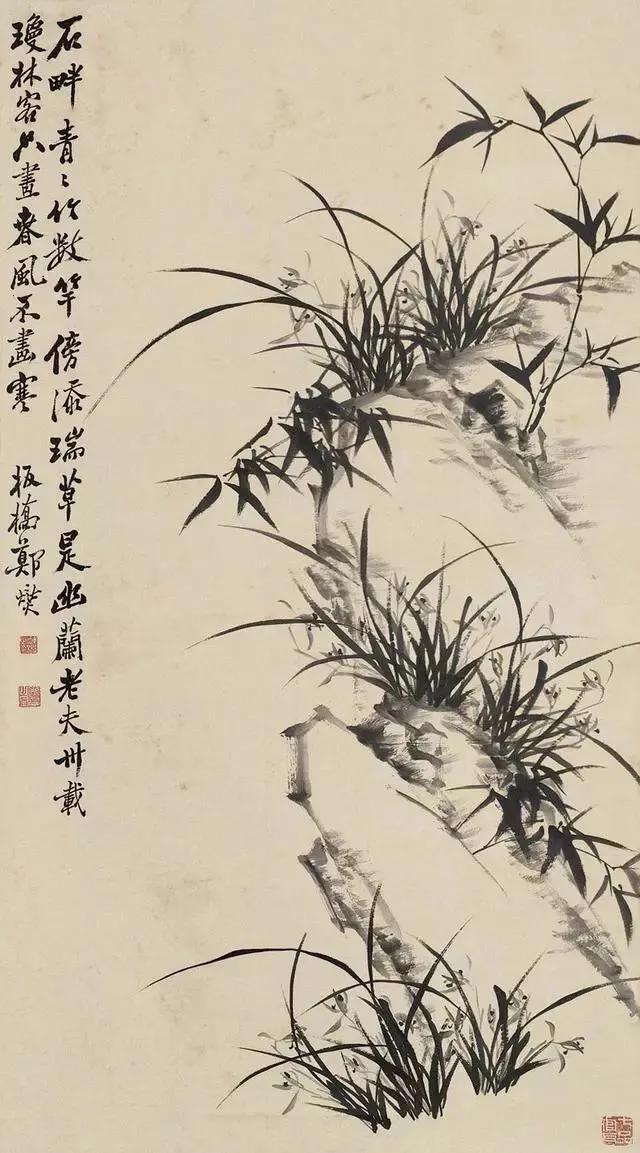 石畔青〻竹数竿傍添瑞草是幽蘭老夫卅載
瓊林客只畫春風不畫寒
板橋鄭燮